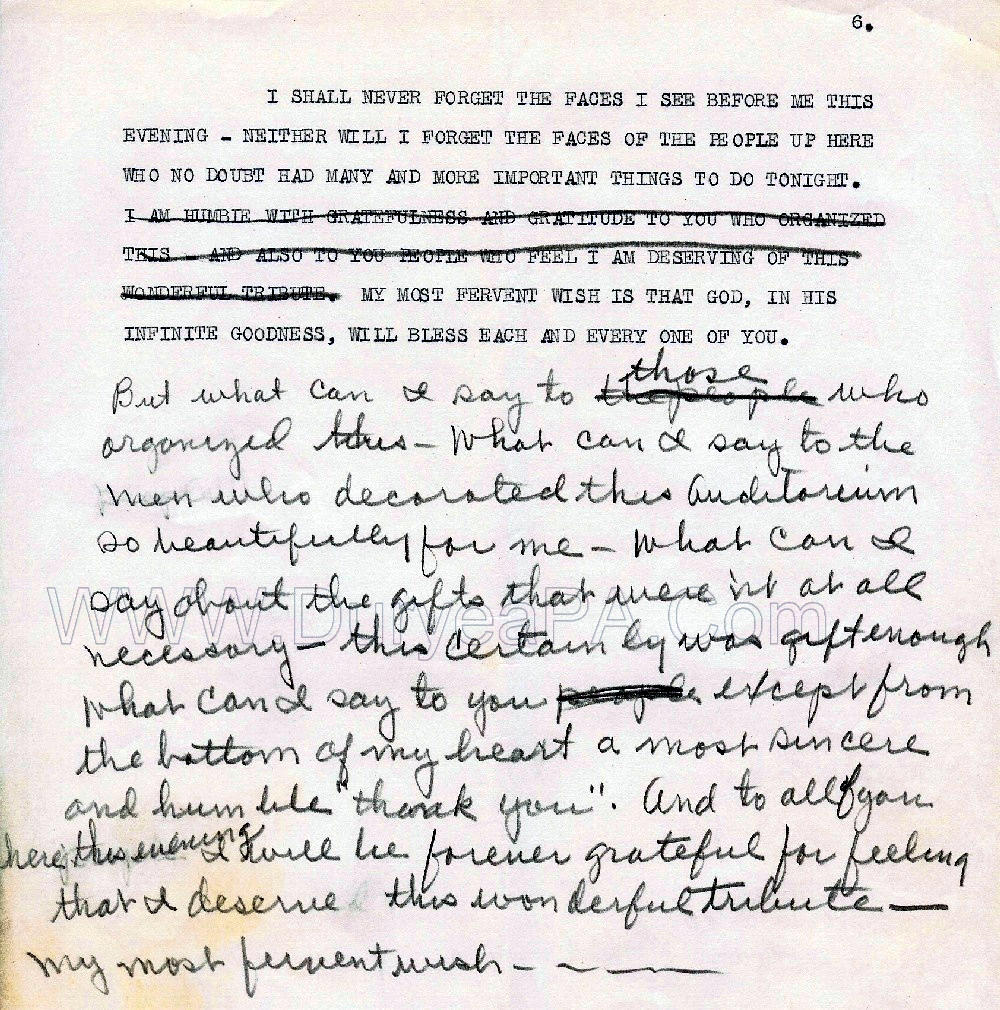 6.
I SHALL NEVER FORGET THE FACES I SEE BEFORE ME THIS
EVENING - NEITHER WILL I FORGET THE FACES OF THE PEOPLE UP HERE
WHO NO DOUBT HAD MANY AND MORE IMPORTANT THINGS TO DO TONIGHT.
I AM HUMBLE WITH GRATEFULNESS AND GRATITUDE TO YOU WHO ORGANIZED
THIS - AND ALSO TO YOU PEOPLE WHO FEEL I AM DESERVING OF THIS
WONDERFUL TRIBUTE. MY MOST FERVENT WISH IS THAT GOD, IN HIS
INFINITE GOODNESS, WILL BLESS EACH AND EVERY ONE OF YOU.
those
But what can I say to the people who
organized this - What can I say to the
men who decorated this Auditorium
so beautifully for me - What can I
say about the gifts that were'nt at all
WWW.DuryeaPA.Com
necessary - this certainly was gift enough
What can I say to you people except from
the bottom of my heart a most sincere
and humble "thank you". And to all of you
here this evening I will be forever grateful for feeling
that I deserve this wonderful tribute -
my most fervent wish - - - -